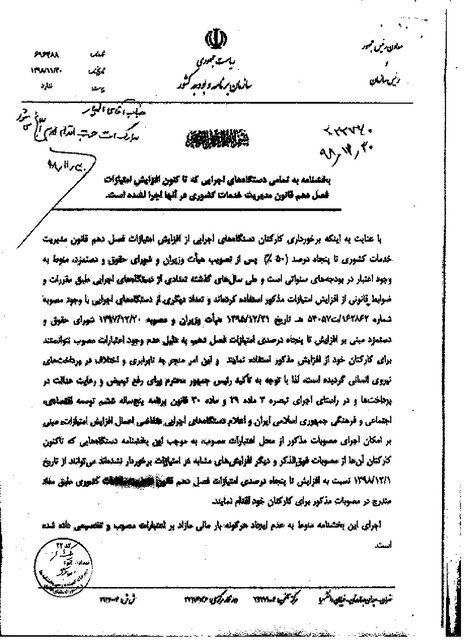 ریاست جمهوری
سازمان برنامه و بودجه کشور
معاون رئیس جمهور
و
رئیس سازمان
شماره: ۶۹۶۲۸۸
تاریخ: ۱۳۹۸/۱۱/۳۰
پیوست: ندارد
۹۸/۱۲/۲۰
بخشنامه به تمامی دستگاه‌های اجرایی که تا کنون افزایش امتیازات
فصل دهم قانون مدیریت خدمات کشوری در آنها اجرا نشده است.
با عنایت به اینکه برخورداری کارکنان دستگاه‌های اجرایی از افزایش امتیازات فصل دهم قانون مدیریت
خدمات کشوری تا پنجاه درصد (۵۰٪) پس از تصویب هیأت وزیران و شورای حقوق و دستمزد، منوط به
وجود اعتبار در بودجه‌های سنواتی است و طی سال‌های گذشته تعدادی از دستگاه‌های اجرایی طبق مقررات و
ضوابط قانونی از افزایش امتیازات مذکور استفاده کرده‌اند و تعداد دیگری از دستگاه‌های اجرایی با وجود مصوبه
شماره ۱۶۲۸۶۲/ت۵۴۰۵۷هـ تاریخ ۱۳۹۵/۱۲/۲۱ هیأت وزیران و مصوبه ۱۳۹۷/۱۲/۲۰ شورای حقوق و
دستمزد مبنی بر افزایش تا پنجاه درصدی امتیازات فصل دهم به دلیل عدم وجود اعتبارات مصوب نتوانستند
برای کارکنان خود از افزایش مذکور استفاده نمایند و این امر منجر به نابرابری و اختلاف در پرداخت‌های
نیروی انسانی گردیده است، لذا با توجه به تأکید رئیس جمهور محترم برای رفع تبعیض و رعایت عدالت در
پرداخت‌ها و در راستای اجرای تبصره ۳ ماده ۲۹ و ماده ۳۰ قانون برنامه پنج‌ساله ششم توسعه اقتصادی،
اجتماعی و فرهنگی جمهوری اسلامی ایران و اعلام دستگاه‌های اجرایی متقاضی اعمال افزایش امتیازات، مبنی
بر امکان اجرای مصوبات مذکور از محل اعتبارات مصوب، به موجب این بخشنامه دستگاه‌هایی که تاکنون
کارکنان آن‌ها از مصوبات فوق‌الذکر و دیگر افزایش‌های مشابه هر امتیازات برخوردار نشده‌اند می‌توانند از تاریخ
۱۳۹۸/۱۲/۱ نسبت به افزایش تا پنجاه درصدی امتیازات فصل دهم قانون کشوری طبق مفاد
مندرج در مصوبات مذکور برای کارکنان خود اقدام نمایند.
اجرای این بخشنامه منوط به عدم ایجاد هرگونه بار مالی مازاد بر اعتبارات مصوب و تخصیصی داده شده
است.